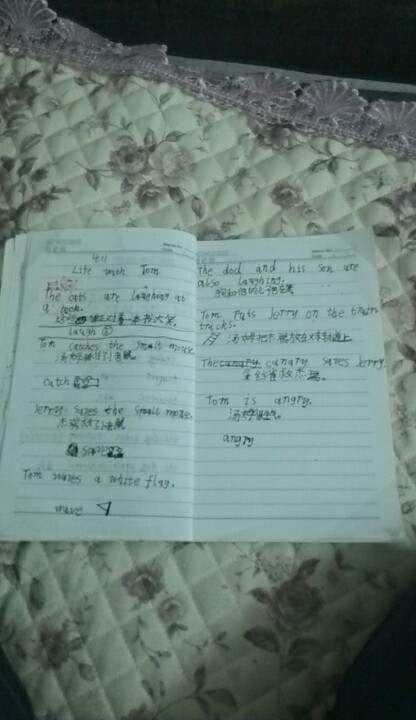 4.11
Life with Tom
The cats are laughing at
a book.
这些猫在对着一本书大笑.
laugh
Tom catches the small mouse.
汤姆抓了小老鼠
catch
Jerry saves the small mouse.
杰瑞救了小老鼠
save
Tom waves a white flag.
wave
The dod and his son are
also laughing.
狗和他的儿子也在笑
Tom puts Jerry on the train
tracks.
汤姆把杰瑞放在火车轨道上
The canary canary saves Jerry
金丝雀救杰瑞.
Tom is angry.
汤姆很生气.
angry